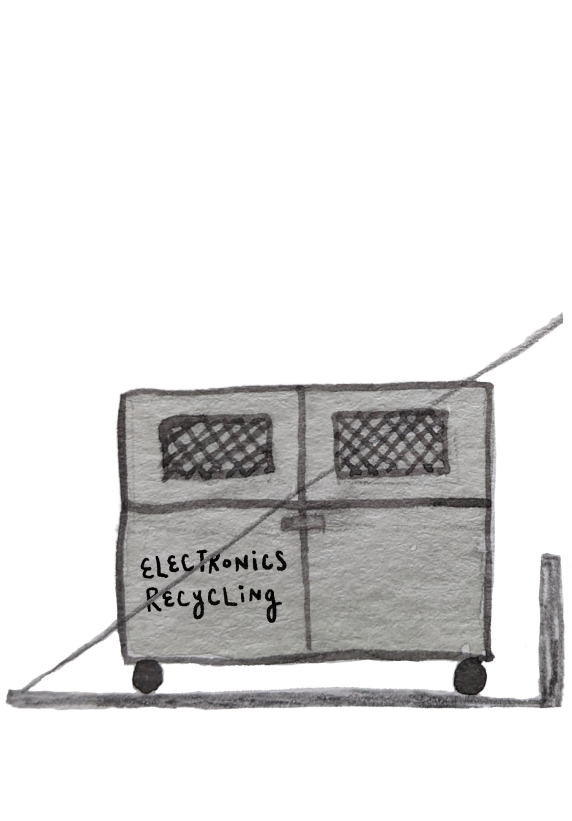 ELECTRONiCS
RECyCLiNg